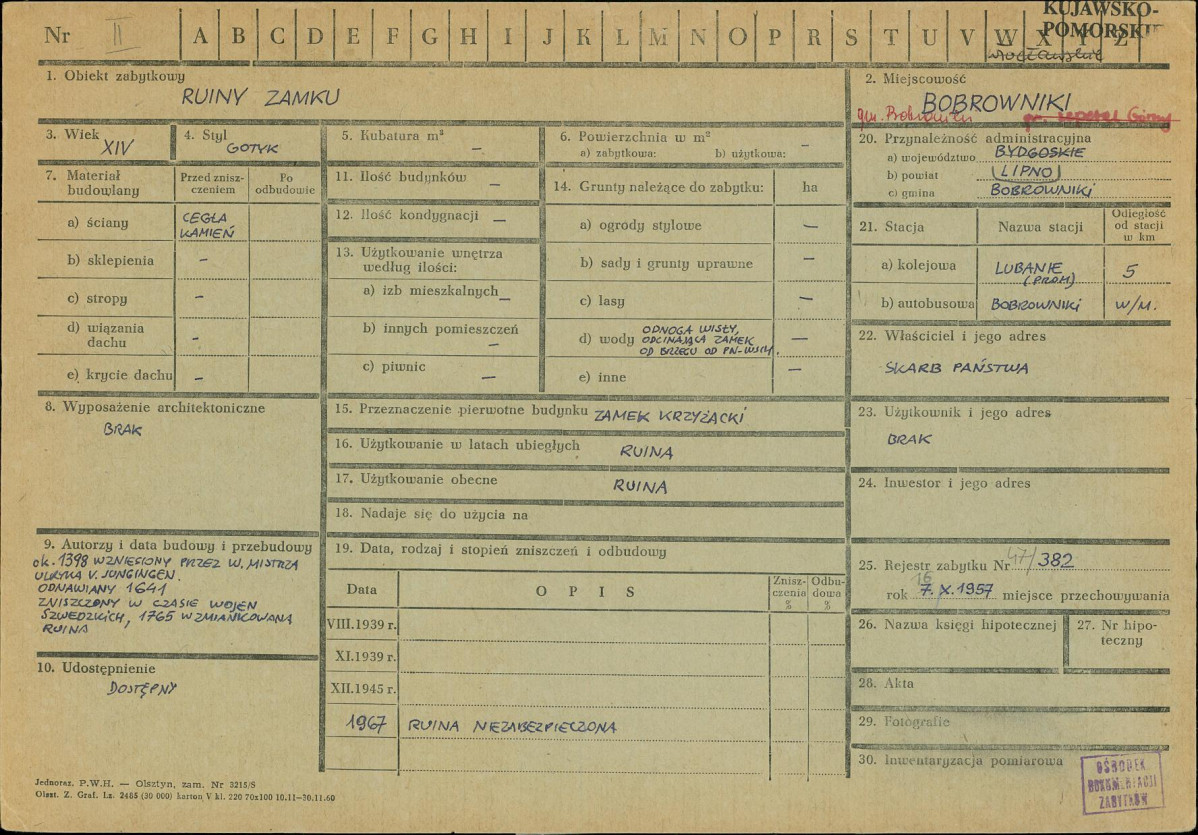 Nr II A B C D E F G H I J K L M N O P R S T U V W X Y Z
KUJAWSKO-
POMORSKIE
włocławskie
1. Obiekt zabytkowy
RUINY ZAMKU
2. Miejscowość
BOBROWNIKI
gm. Bobrowniki
3. Wiek
XIV
4. Styl
GOTYK
5. Kubatura m³ —
6. Powierzchnia w m² —
a) zabytkowa: b) użytkowa:
20. Przynależność administracyjna
a) województwo BYDGOSKIE
b) powiat (LIPNO)
c) gmina BOBROWNIKI
7. Materiał budowlany
Przed znisz-
czeniem
Po
odbudowie
a) ściany CEGŁA
KAMIEŃ
b) sklepienia —
c) stropy —
d) wiązania
dachu —
e) krycie dachu —
11. Ilość budynków —
12. Ilość kondygnacji —
13. Użytkowanie wnętrza
według ilości:
a) izb mieszkalnych —
b) innych pomieszczeń —
c) piwnic —
14. Grunty należące do zabytku: ha
a) ogrody stylowe —
b) sady i grunty uprawne —
c) lasy —
d) wody ODNOGA WISŁY,
ODCINAJĄCA ZAMEK
OD BRZEGU OD PN-WSCH. —
e) inne —
21. Stacja Nazwa stacji
Odległość
od stacji
w km
a) kolejowa LUBANIE
(PROM) 5
b) autobusowa BOBROWNIKI W/M.
22. Właściciel i jego adres
SKARB PAŃSTWA
8. Wyposażenie architektoniczne
BRAK
15. Przeznaczenie pierwotne budynku ZAMEK KRZYŻACKI
16. Użytkowanie w latach ubiegłych RUINA
17. Użytkowanie obecne RUINA
18. Nadaje się do użycia na
23. Użytkownik i jego adres
BRAK
24. Inwestor i jego adres
9. Autorzy i data budowy i przebudowy
ok. 1398 WZNIESIONY PRZEZ W. MISTRZA
ULRYKA V. JUNGINGEN.
ODNAWIANY 1641
ZNISZCZONY W CZASIE WOJEN
SZWEDZKICH, 1765 WZMIANKOWANA
RUINA
10. Udostępnienie
DOSTĘPNY
19. Data, rodzaj i stopień zniszczeń i odbudowy
Data O P I S
Znisz-
czenia
%
Odbu-
dowa
%
VIII.1939 r.
XI.1939 r.
XII.1945 r.
1967 RUINA NIEZABEZPIECZONA
25. Rejestr zabytku Nr 47/382
16
rok 7.X.1957 miejsce przechowywania
26. Nazwa księgi hipotecznej
27. Nr hipo-
teczny
28. Akta
29. Fotografie
30. Inwentaryzacja pomiarowa
OŚRODEK
DOKUMENTACJI
ZABYTKÓW
Jednoraz. P.W.H. — Olsztyn, zam. Nr 3215/S
Olszt. Z. Graf. Lz. 2485 (30 000) karton V kl. 220 70x100 10.11—30.11.60